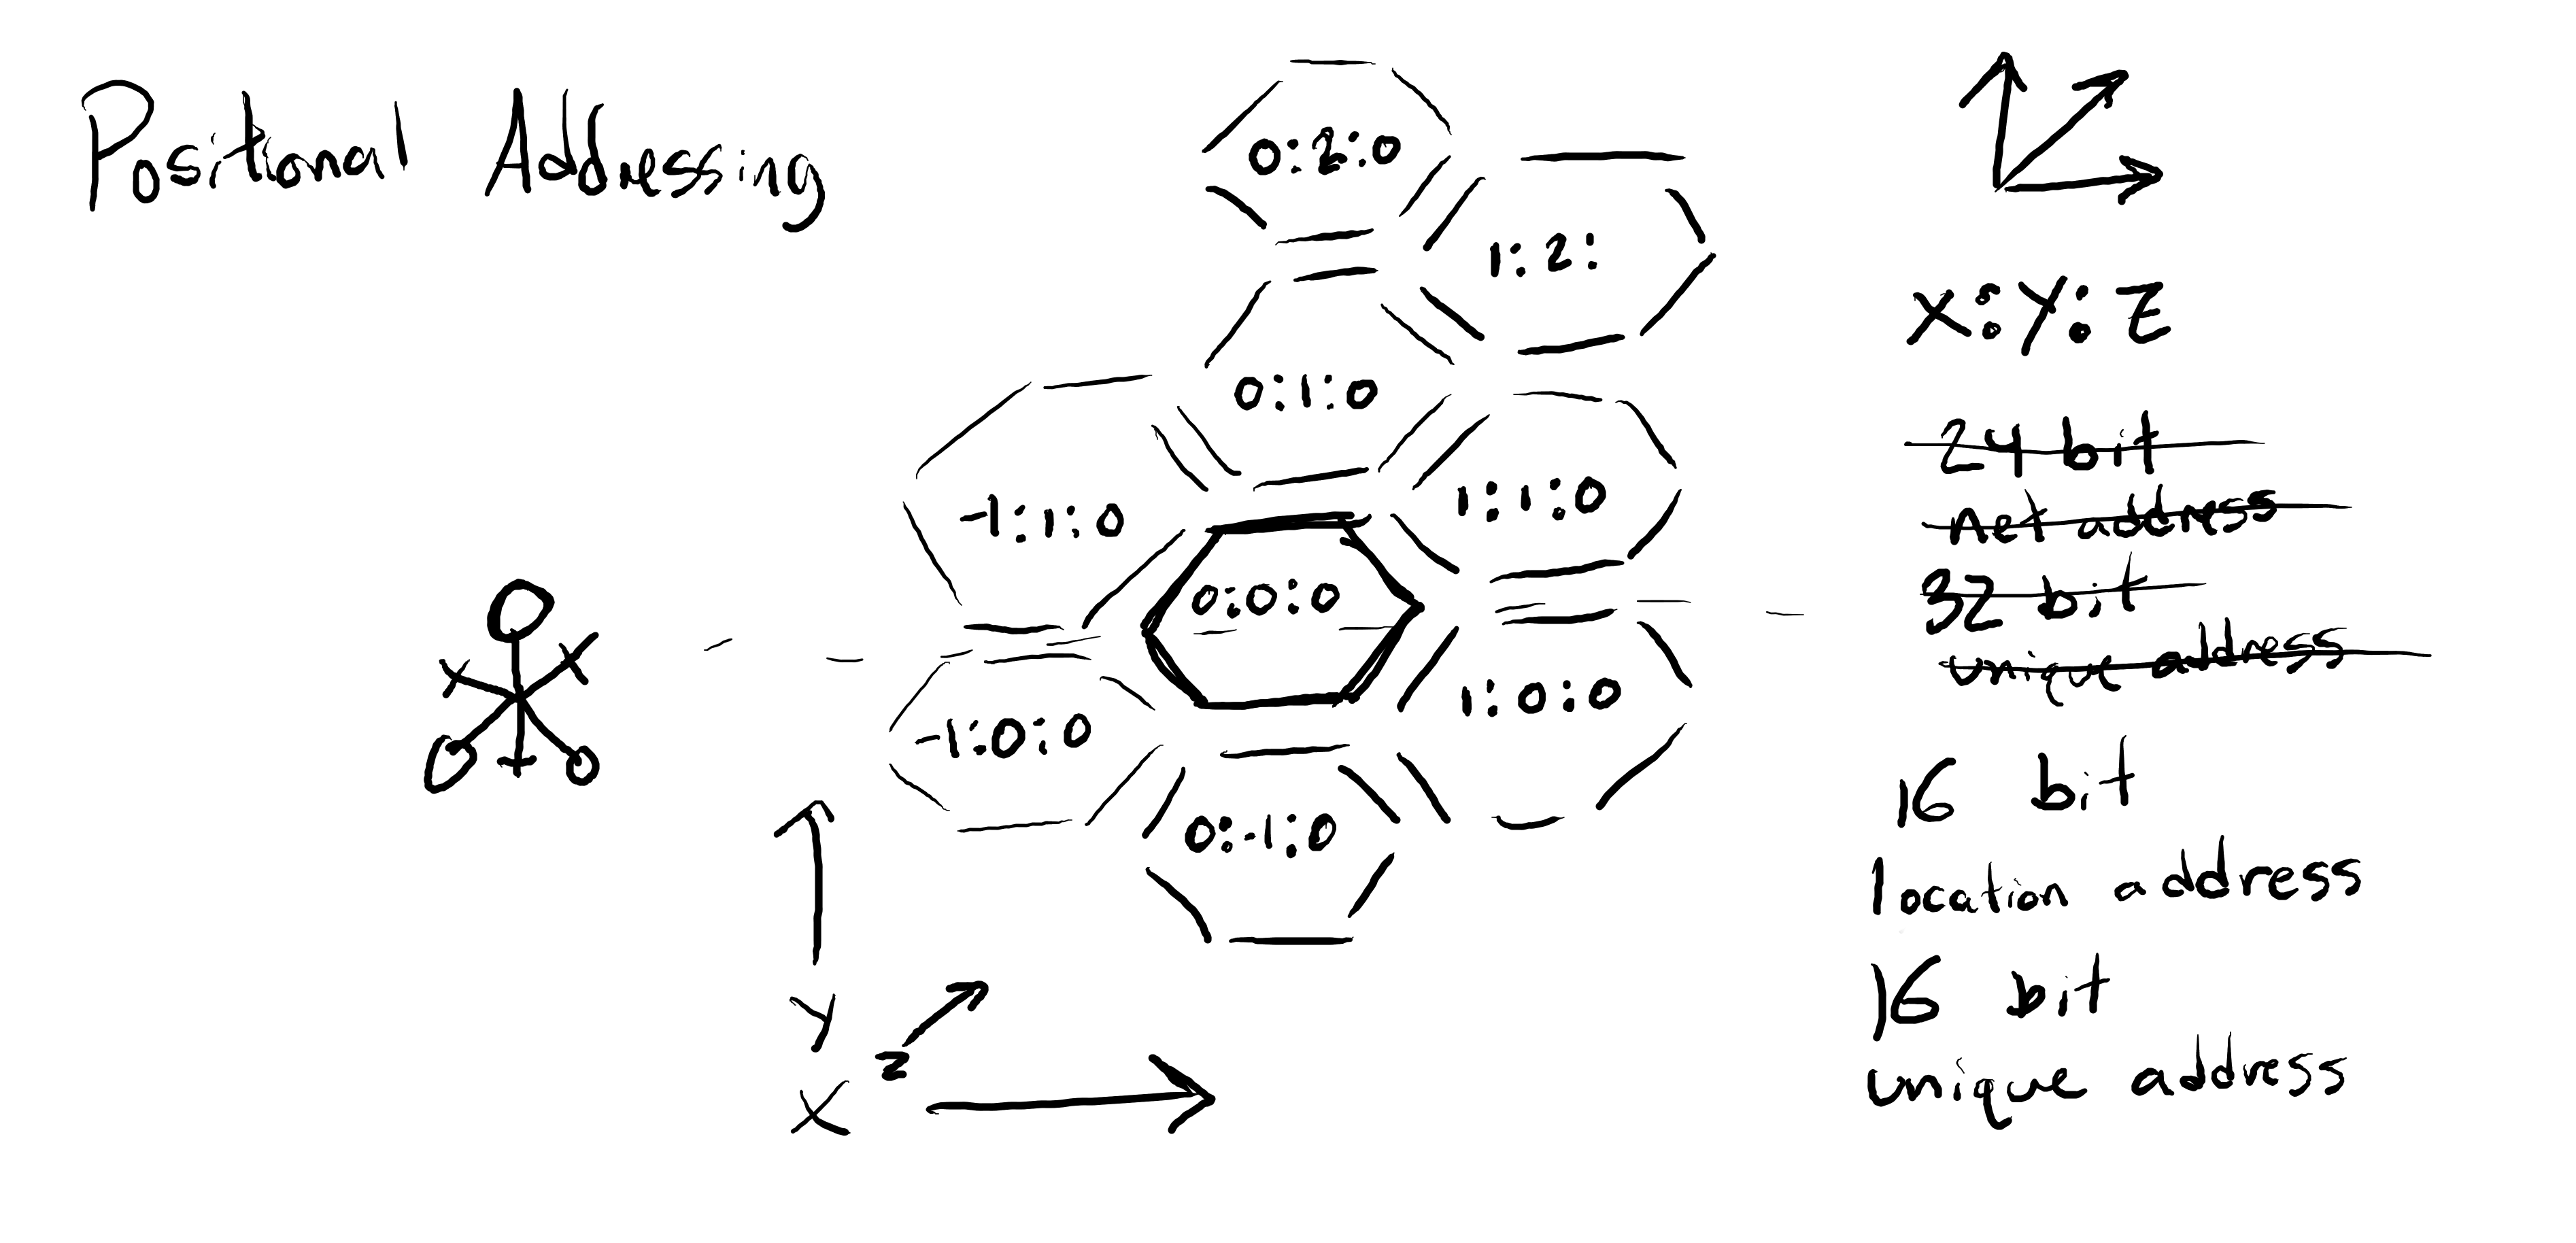 Positional Addressing
0:2:0
1:2:
0:1:0
-1:1:0
1:1:0
0:0:0
-1:0:0
1:0:0
0:-1:0
Y
Z
X
X:Y:Z
24 bit
net address
32 bit
unique address
16 bit
location address
16 bit
unique address